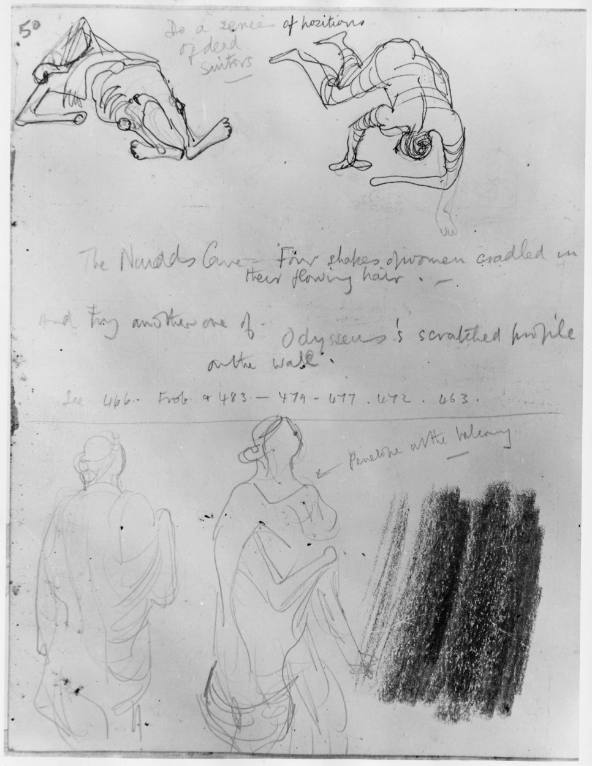 50
Do a series of positions
of dead
suitors
The Naiads Cave - Four shapes of women cradled in
their flowing hair. -
And try another one of Odysseus's scratched profile
on the wall.
See 466. Frob & 483 - 479 - 477. 472. 463.
Penelope on the balcony